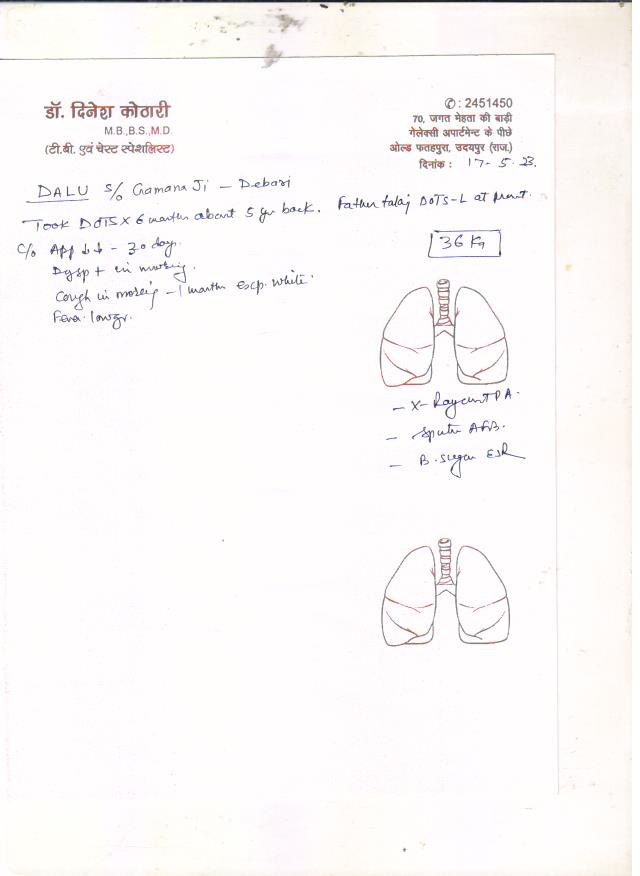 डॉ. दिनेश कोठारी
M.B.,B.S.,M.D.
(टी.बी. एवं चेस्ट स्पेशलिस्ट)
✆: 2451450
70, जगत मेहता की बाड़ी
गेलेक्सी अपार्टमेन्ट के पीछे
ओल्ड फतहपुरा, उदयपुर (राज.)
दिनांक : 17-5-23.
DALU S/o Gamana Ji - Debari
Took DOTS X 6 months about 5 yr back. Father taking DOTS-L at present.
C/o App ↓↓ - 30 day.
36 Kg
Dysp + in morning.
Cough in morning - 1 months Exp. white.
Fever. low gr.
- X-Ray PA.
- Sputum AFB.
- B. Sugar ESR